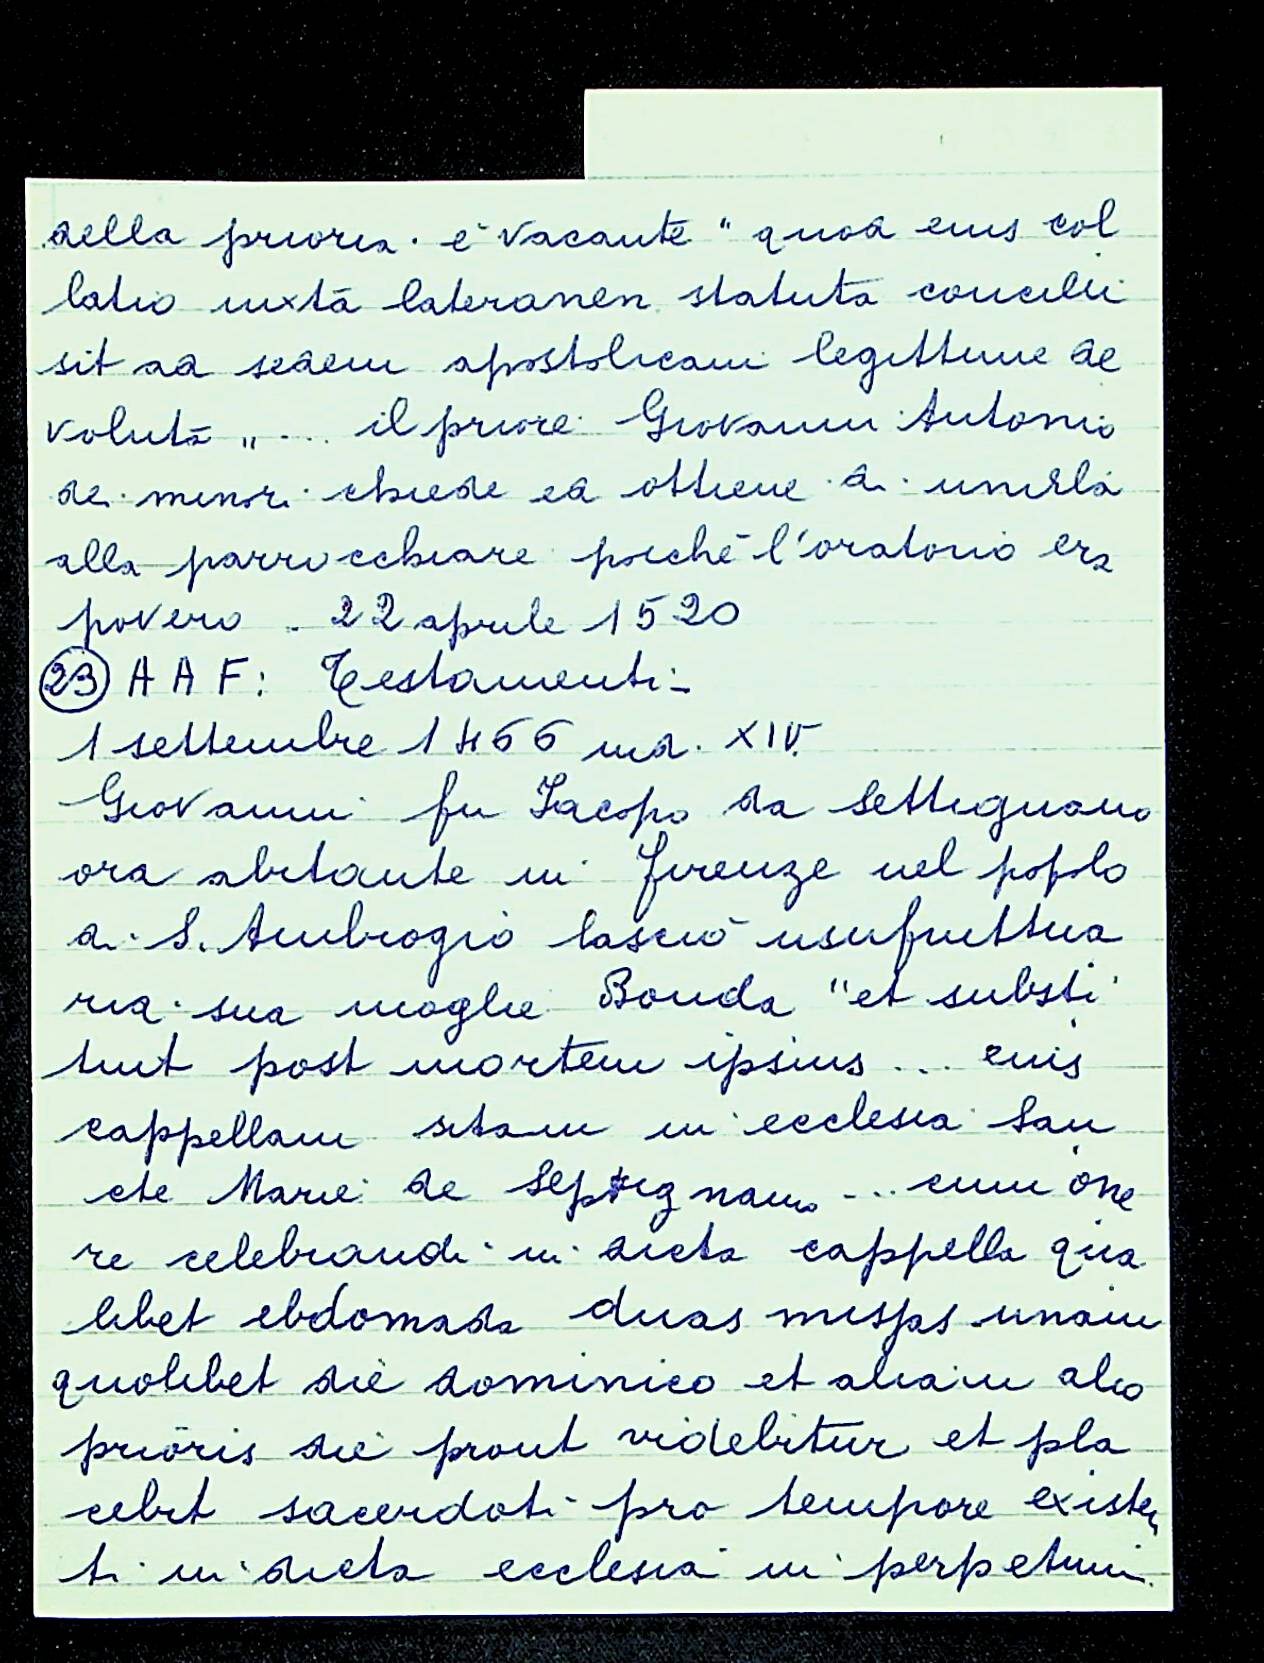 della prioria. è vacante "quod eius col
latio iuxta lateranen statuta concilii
sit ad sedem apostolicam legittime de
voluta" ... il priore Giovanni Antonio
dei minori chiede ed ottiene di unirla
alla parrocchiare poiché l'oratorio era
povero. 22 aprile 1520
(23) A A F: Testamenti -
1 settembre 1466 ind. XIV.
Giovanni fu Jacopo da Settignano
ora abitante in Firenze nel popolo
di S. Ambrogio lasciò usufruttua
ria sua moglie Bonda "et substi
tuit post mortem ipsius ... eius
cappellam sitam in ecclesia San
cte Marie de Septignano ... cum one
re celebrandi in dicta cappella qua
libet ebdomada duas missas unam
quolibet die dominico et aliam alio
prioris die prout videbitur et pla
cebit sacerdoti pro tempore existen
ti in dicta ecclesia in perpetuum.